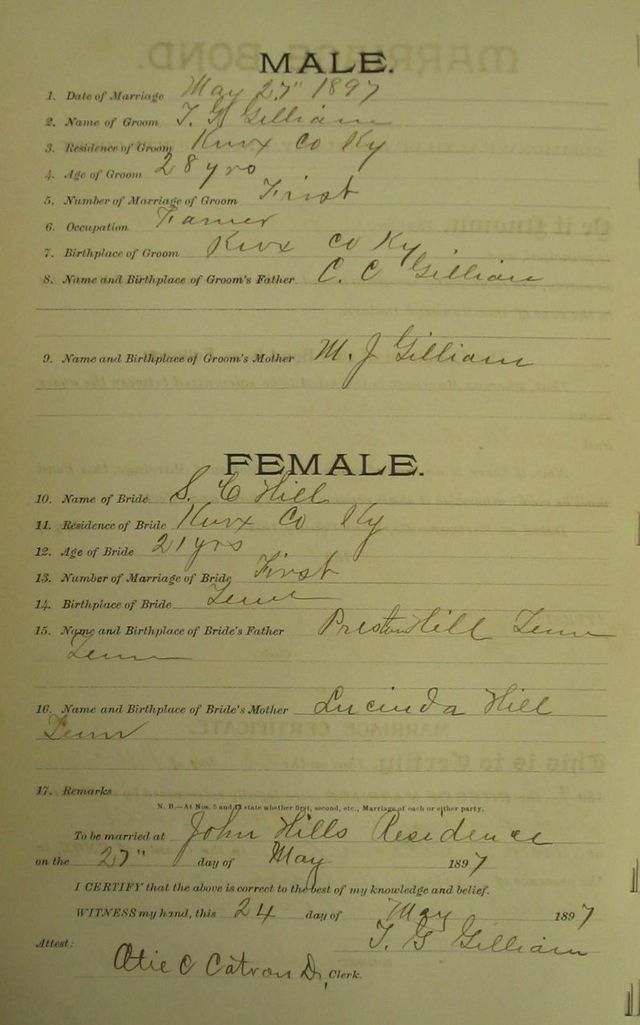 MALE.
1. Date of Marriage May 27" 1897
2. Name of Groom T. G Gilliam
3. Residence of Groom Knox Co Ky
4. Age of Groom 28 yrs
5. Number of Marriage of Groom First
6. Occupation Farmer
7. Birthplace of Groom Knox Co Ky
8. Name and Birthplace of Groom's Father C. C Gilliam
9. Name and Birthplace of Groom's Mother M. J Gilliam
FEMALE.
10. Name of Bride S. C Hill
11. Residence of Bride Knox Co Ky
12. Age of Bride 21 yrs
13. Number of Marriage of Bride First
14. Birthplace of Bride Tenn
15. Name and Birthplace of Bride's Father Preston Hill Tenn
Tenn
16. Name and Birthplace of Bride's Mother Lucinda Hill
Tenn
17. Remarks
N. B.—At Nos. 5 and 13 state whether first, second, etc., Marriage of each or either party.
To be married at John Hills Residence
on the 27" day of May 1897
I CERTIFY that the above is correct to the best of my knowledge and belief.
WITNESS my hand, this 24 day of May 1897
T. G Gilliam
Attest:
Catron Clerk.